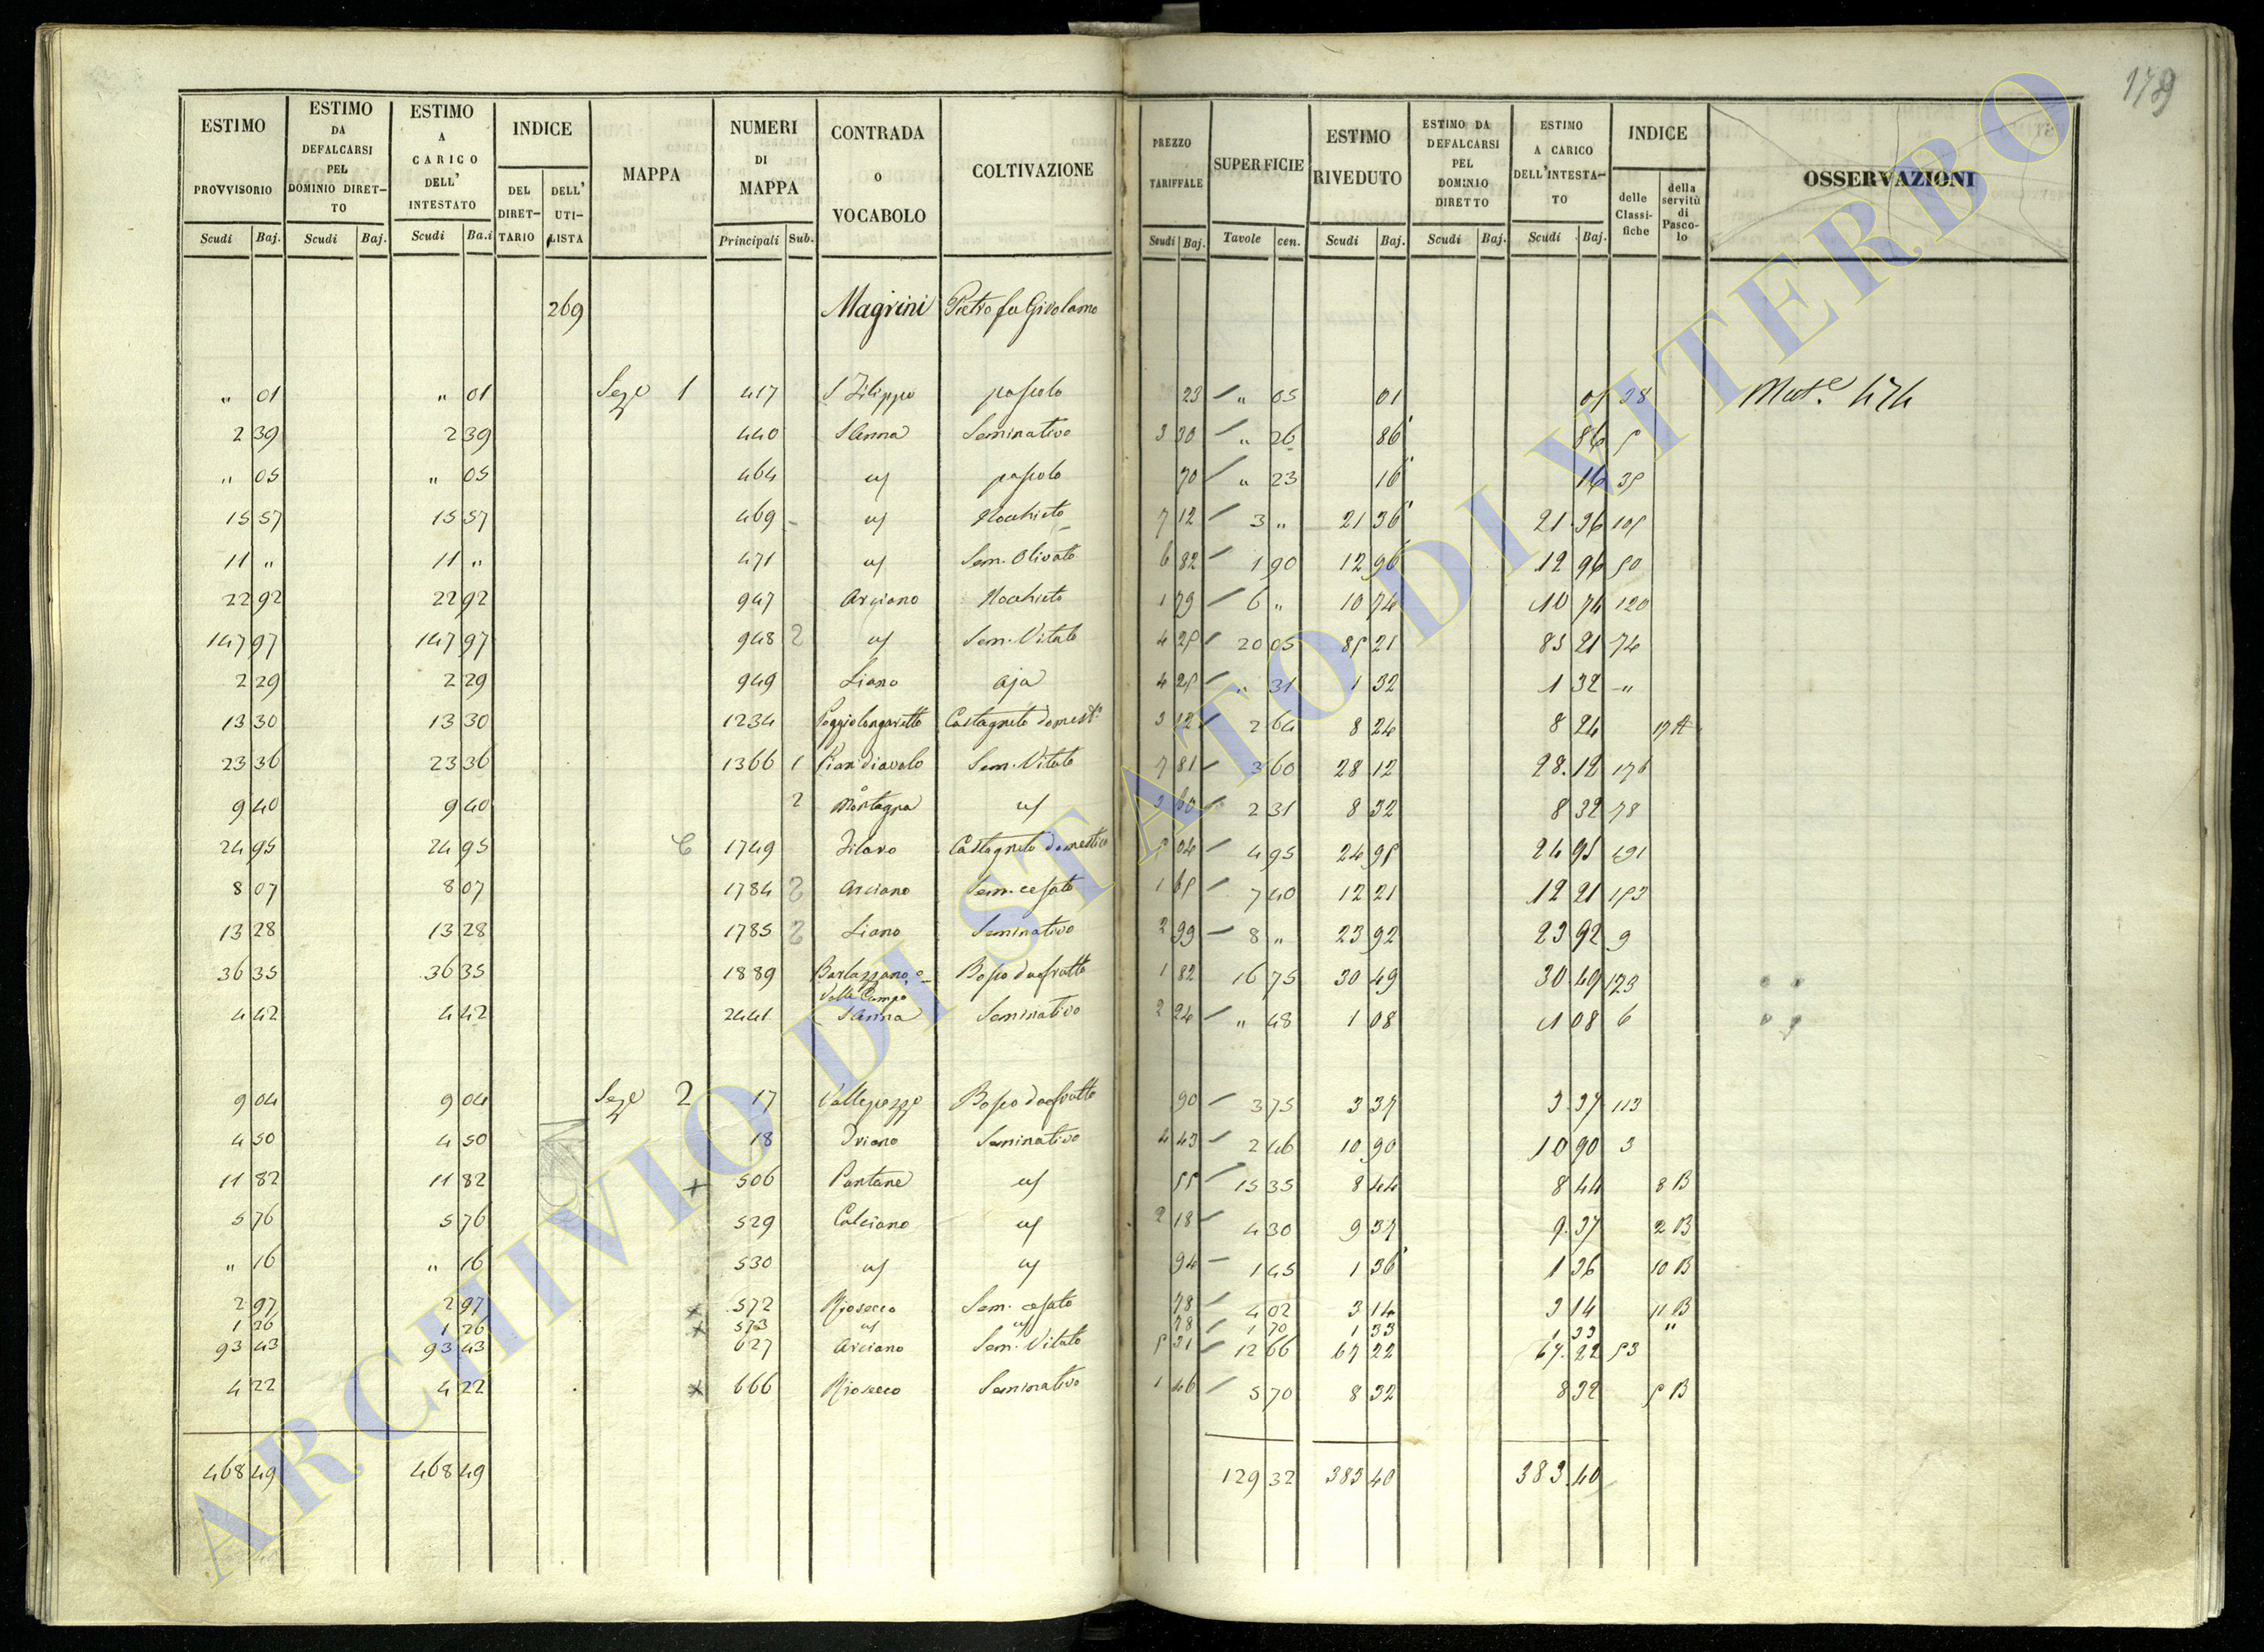 179
ESTIMO PROVVISORIO Scudi Baj.
ESTIMO DA DEFALCARSI PEL DOMINIO DIRET-TO Scudi Baj.
ESTIMO A CARICO DELL' INTESTATO Scudi Ba.i
INDICE DEL DIRET-TARIO DELL' UTI-LISTA
MAPPA
NUMERI DI MAPPA Principali Sub.
CONTRADA O VOCABOLO
COLTIVAZIONE
PREZZO TARIFFALE Scudi Baj.
SUPERFICIE Tavole cen.
ESTIMO RIVEDUTO Scudi Baj.
ESTIMO DA DEFALCARSI PEL DOMINIO DIRETTO Scudi Baj.
ESTIMO A CARICO DELL'INTESTA-TO Scudi Baj.
INDICE delle Classi-fiche della servitù di Pasco-lo
OSSERVAZIONI
269 Magrini Pietro fu Girolamo
" 01 " 01 Sez.e 1 417 S Filippo pascolo 23 " 05 01 01 38 Mut.e 474
2 39 2 39 440 S Anna Seminativo 3 30 " 26 86 86 5
" 05 " 05 464 pascolo 70 " 23 16 16 35
15 57 15 57 469 Nocchieto 7 12 3 " 21 36 21 36 105
11 " 11 " 471 Sem. Olivato 6 82 1 90 12 96 12 96 50
22 92 22 92 947 Arciano Nocchieto 1 79 6 " 10 74 10 74 120
147 97 147 97 948 2 Sem. Vitato 4 25 20 05 85 21 85 21 74
2 29 2 29 949 Liano Aja 4 25 " 31 1 32 1 32 "
13 30 13 30 1234 Poggiolongaretto Castagneto domest.o 3 12 2 64 8 24 8 24 17 A
23 36 23 36 1366 1 Pian diavolo Sem. Vitato 7 81 3 60 28 12 28.12 176
9 40 9 40 2 Montagna 3 60 2 31 8 32 8 32 78
24 95 24 95 1749 Filaro Castagneto domestico 5 04 4 95 24 95 24 95 191
8 07 8 07 1784 2 Arciano Sem. cesato 1 65 7 40 12 21 12 21 153
13 28 13 28 1785 2 Liano Seminativo 2 99 8 " 23 92 23 92 9
36 35 36 35 1889 Barlazzano e Valle Campo Bosco da frutto 1 82 16 75 30 49 30.49 123
4 42 4 42 2441 S Anna Seminativo 2 24 " 48 1 08 1 08 6
9 04 9 04 Sez.e 2 17 Vallepozzo Bosco da frutto 90 3 75 3 37 3.37 113
4 50 4 50 18 Oriano Seminativo 4 43 2 46 10 90 10 90 3
11 82 11 82 506 Pantane 55 15 35 8 44 8 44 8 B
5 76 5 76 529 Calciano 2 18 4 30 9 37 9.37 2 B
" 16 " 16 530 94 1 45 1 36 1 36 10 B
2 97 2 97 572 Riosecco Sem. cesato 78 4 02 3 14 3 14 11 B
1 26 1 26 573 78 1 70 1 33 1 33 "
93 43 93 43 627 Arciano Sem. Vitato 5 31 12 66 67 22 67.22 53
4 22 4 22 666 Riosecco Seminativo 1 46 5 70 8 32 8 32 5 B
468 49 468 49 129 32 383 40 383.40
ARCHIVIO DI STATO DI VITERBO